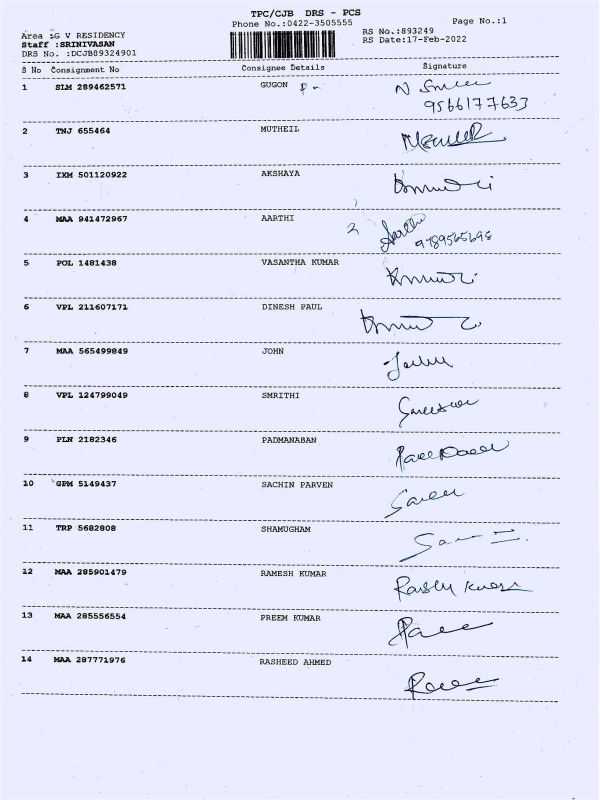 TPC/CJB DRS - PCS
Phone No.:0422-3505555
Page No.:1
Area :G V RESIDENCY
RS No.:893249
Staff :SRINIVASAN
RS Date:17-Feb-2022
DRS No. :DCJB89324901
S No Consignment No Consignee Details Signature
1 SLM 289462571 GUGON
9566177633
2 TNJ 655464 MUTHEIL
3 IXM 501120922 AKSHAYA
4 MAA 941472967 AARTHI Aarthi
9789565698
5 POL 1481438 VASANTHA KUMAR
6 VPL 211607171 DINESH PAUL
7 MAA 565499849 JOHN
8 VPL 124799049 SMRITHI
9 PLN 2182346 PADMANABAN
10 GPM 5149437 SACHIN PARVEN
11 TRP 5682808 SHAMUGHAM
12 MAA 285901479 RAMESH KUMAR
13 MAA 285556554 PREEM KUMAR
14 MAA 287771976 RASHEED AHMED